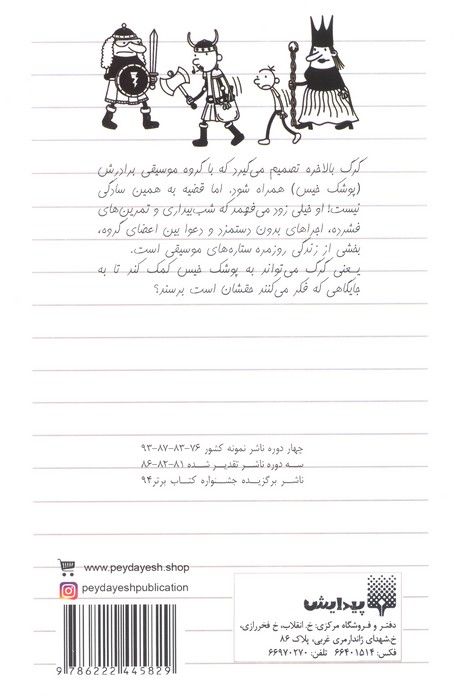 گرگ بالاخره تصمیم می‌گیرد که با گروه موسیقی برادرش
(پوشک خیس) همراه شود. اما قضیه به همین سادگی
نیست! او خیلی زود می‌فهمد که شب‌بیداری و تمرین‌های
فشرده، اجراهای بدون دستمزد و دعوا بین اعضای گروه،
بخشی از زندگی روزمره ستاره‌های موسیقی است.
یعنی گرگ می‌تواند به پوشک خیس کمک کند تا به
جایگاهی که فکر می‌کنند حقشان است برسند؟
چهار دوره ناشر نمونه کشور ۷۶-۸۳-۸۷-۹۳
سه دوره ناشر تقدیر شده ۸۱-۸۲-۸۶
ناشر برگزیده جشنواره کتاب برتر۹۴
www.peydayesh.shop
peydayeshpublication
9 786222 445829
پیدایش
دفتر و فروشگاه مرکزی: خ. انقلاب، خ فخررازی،
خ.شهدای ژاندارمری غربی، پلاک ۸۶
فکس: ۶۶۴۰۱۵۱۴ تلفن: ۶۶۹۷۰۲۷۰